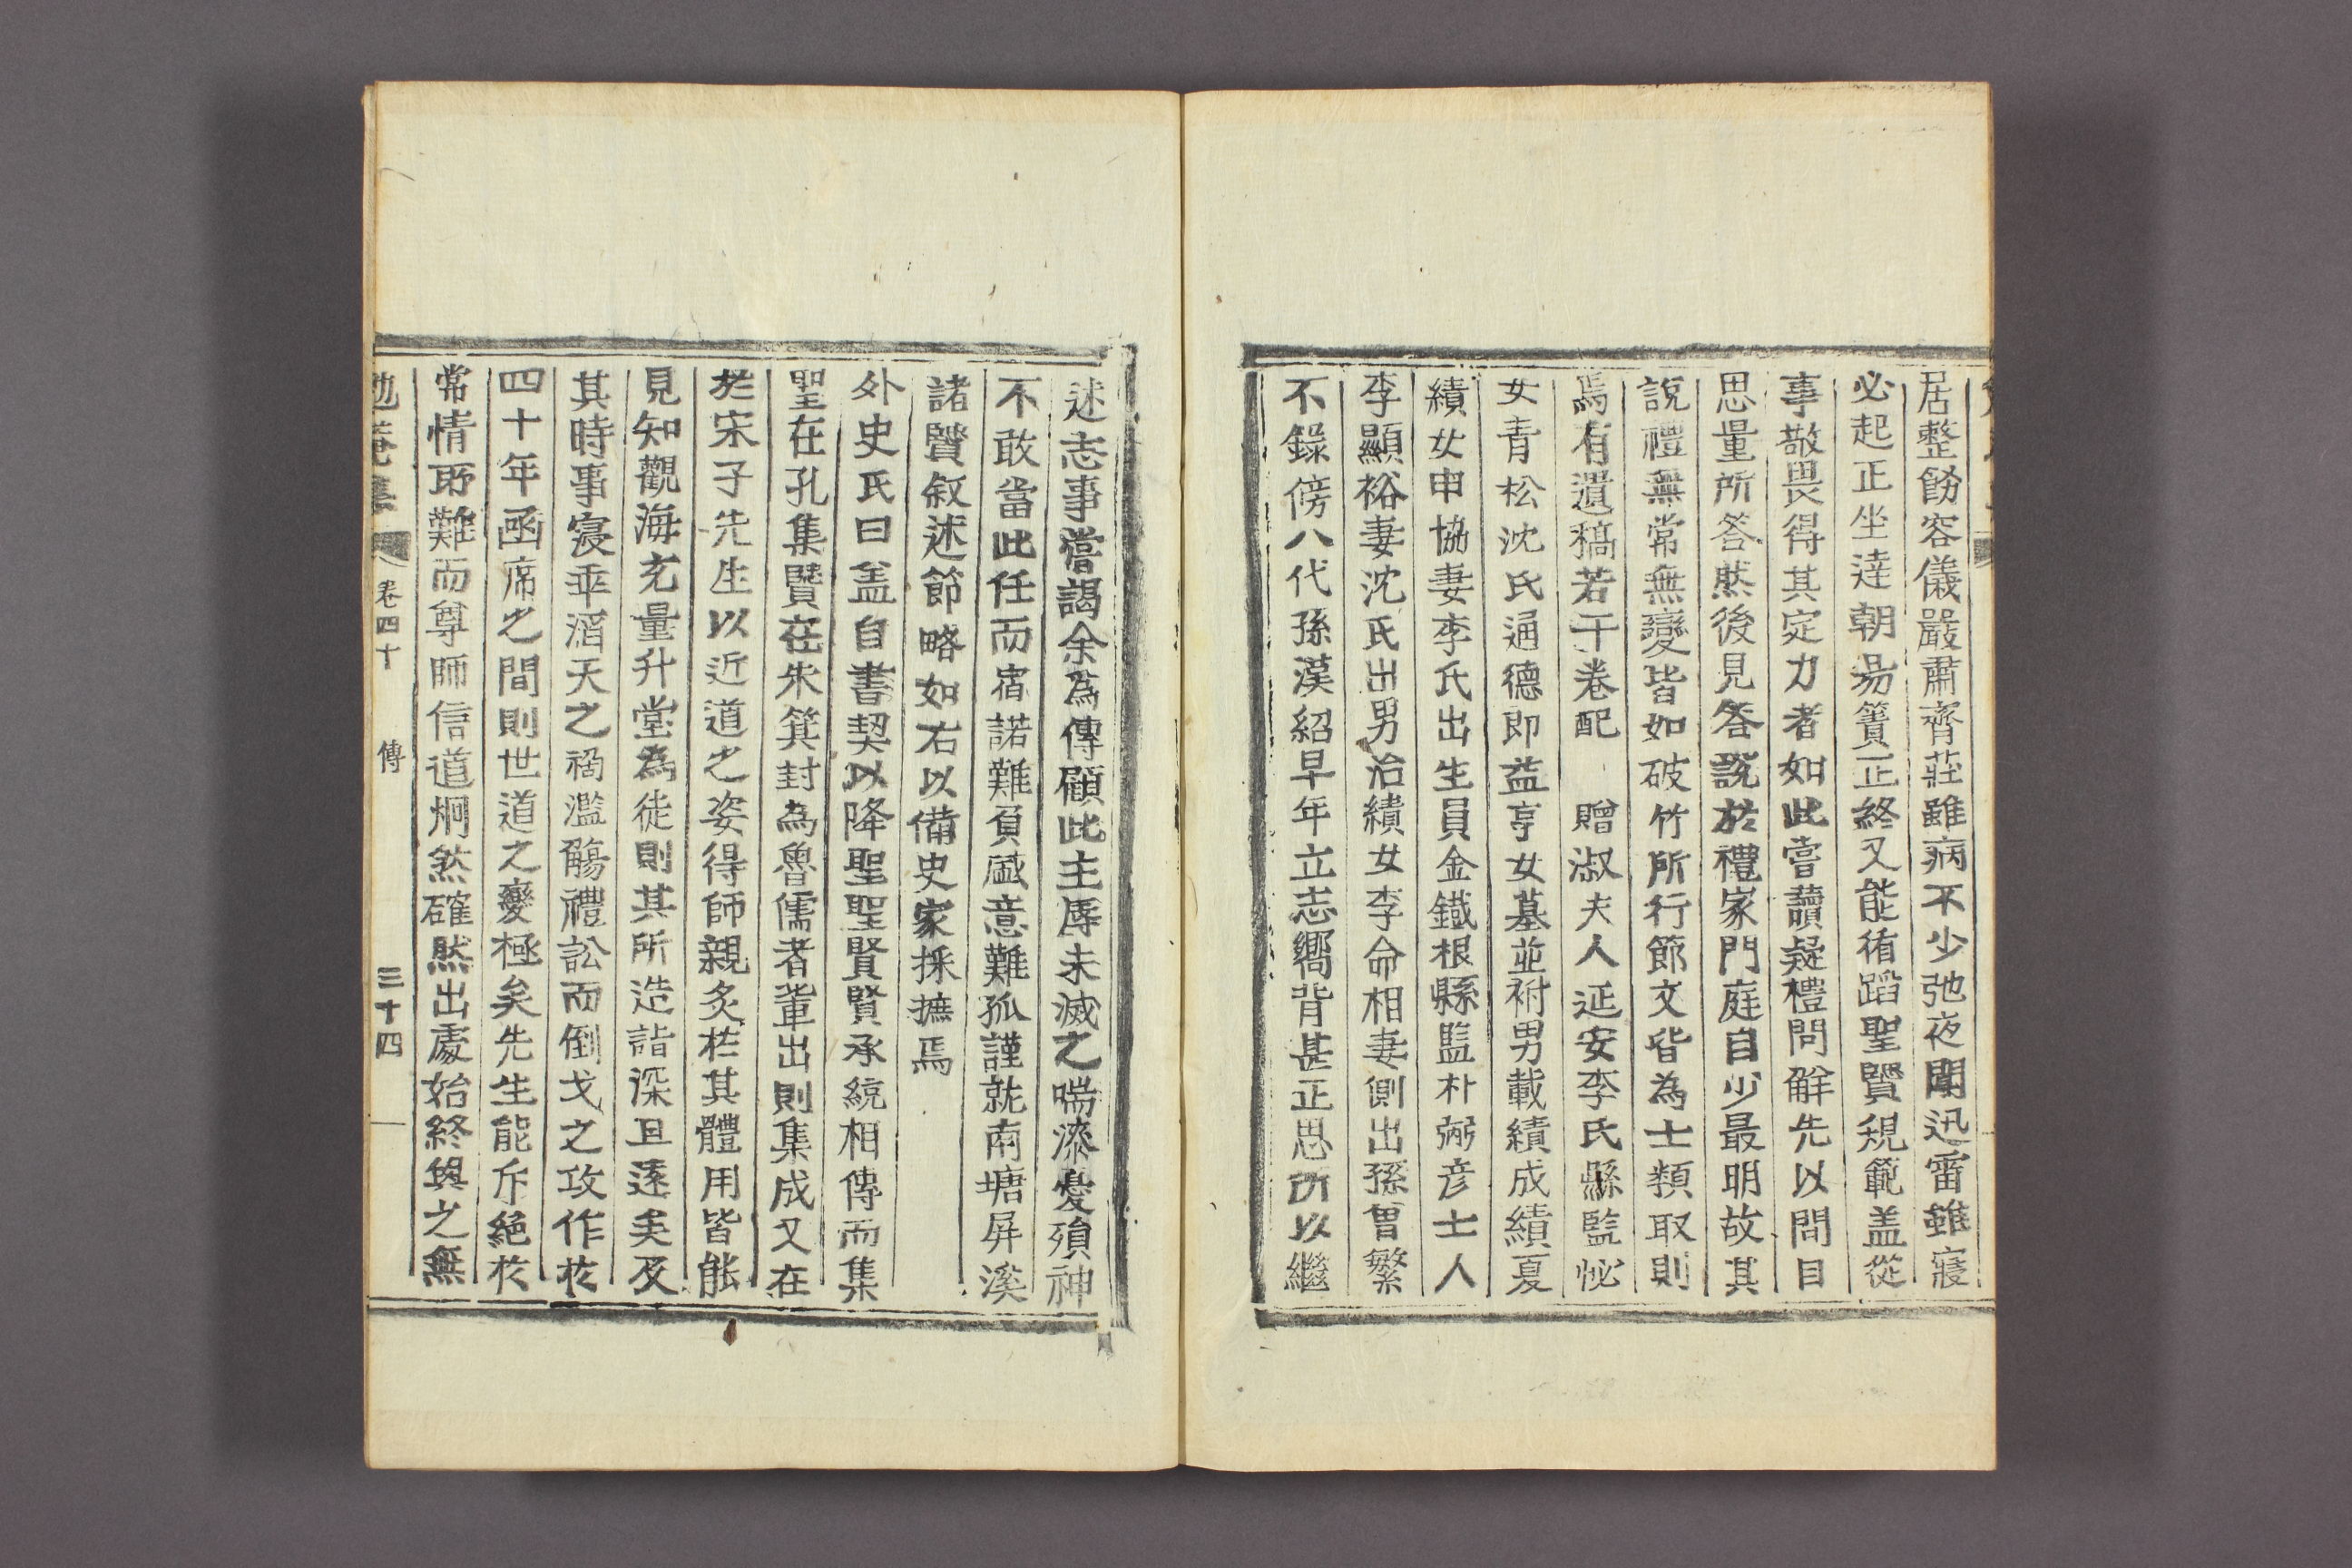 居整飭容儀嚴肅齊莊雖病不少弛夜聞迅雷雖寢
必起正坐達朝易簀正終又能循蹈聖賢規範盖從
事敬畏得其定力者如此嘗讀疑禮問解先以問目
思量所答然後見答說於禮家門庭自少最明故其
說禮無常無變皆如破竹所行節文皆為士類取則
焉有遺稿若干卷配 贈淑夫人延安李氏縣監怭
女青松沈氏通德郎益亨女墓並祔男載績成績夏
績女申協妻李氏出生員金鐵根縣監朴弼彦士人
李顯裕妻沈氏出男治績女李命相妻側出孫曾繁
不錄傍八代孫漢紹早年立志嚮背甚正思所以繼
述志事嘗謁余為傳顧此主辱未滅之喘漆憂殞神
不敢當此任而宿諾難負盛意難孤謹就南塘屏溪
諸賢叙述節略如右以備史家採摭焉
外史氏曰盖自書契以降聖聖賢賢承統相傳而集
聖在孔集賢在朱箕封為魯儒者軰出則集成又在
於宋子先生以近道之姿得師親炙於其體用皆能
見知觀海充量升堂為徒則其所造詣深且邃矣及
其時事寖乖滔天之禍濫觴禮訟而倒戈之攻作於
四十年函席之間則世道之變極矣先生能斥絕於
常情所難而尊師信道烱然確然出處始終與之無
勉菴集 卷四十 傳 三十四